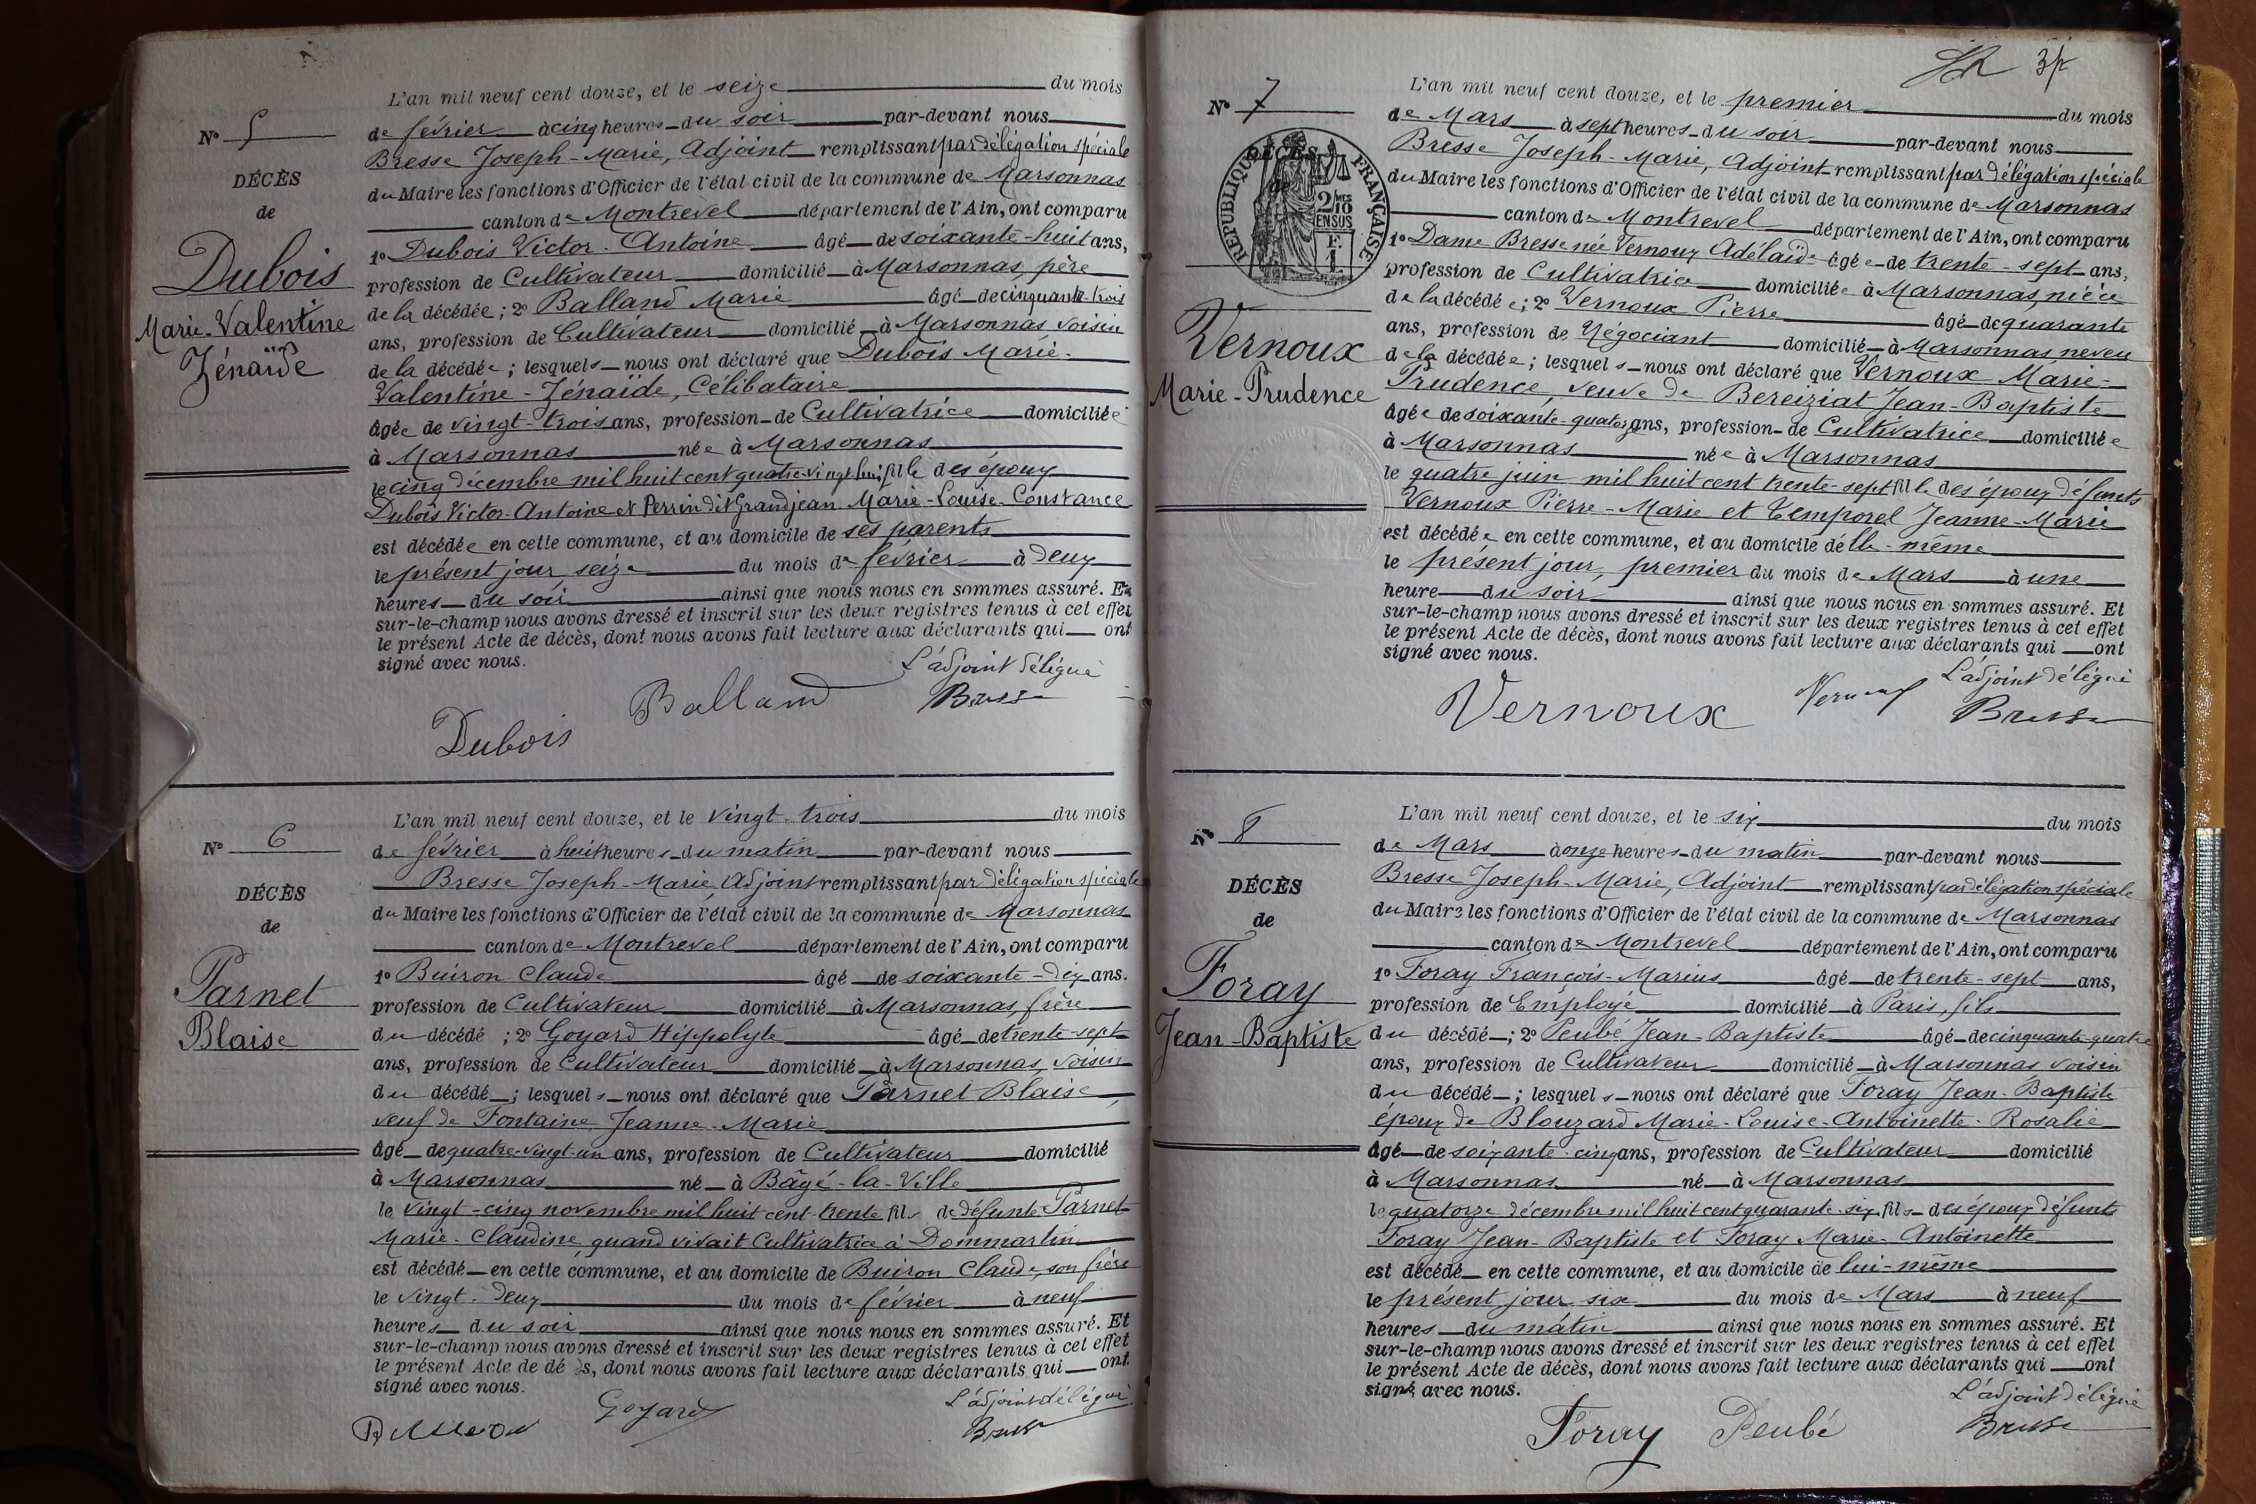 L'an mil neuf cent douze, et le seize du mois
N° 5
de février à cinq heures du soir par-devant nous
Bresse Joseph-Marie, Adjoint remplissant par délégation spéciale
DÉCÈS
du Maire les fonctions d'Officier de l'état civil de la commune de Marsonnas
de
canton de Montrevel département de l'Ain, ont comparu
1° Dubois Victor-Antoine âgé de soixante-huit ans,
Dubois
profession de Cultivateur domicilié à Marsonnas, père
de la décédée; 2° Balland Marie âgé de cinquante-trois
Marie-Valentine
ans, profession de Cultivateur domicilié à Marsonnas voisin
Zénaïde
de la décédée; lesquels nous ont déclaré que Dubois Marie-
Valentine-Zénaïde, Célibataire
âgée de vingt-trois ans, profession de Cultivatrice domiciliée
à Marsonnas née à Marsonnas
le cinq décembre mil huit cent quatre-vingt-huit fille des époux
Dubois Victor-Antoine et Perrin dit Grandjean Marie-Louise-Constance
est décédée en cette commune, et au domicile de ses parents
le présent jour seize du mois de février à deux
heures du soir ainsi que nous nous en sommes assuré. Et
sur-le-champ nous avons dressé et inscrit sur les deux registres tenus à cet effet
le présent Acte de décès, dont nous avons fait lecture aux déclarants qui ont
signé avec nous.
L'adjoint délégué
Balland Bresse
Dubois
L'an mil neuf cent douze, et le vingt-trois du mois
N° 6
de février à huit heures du matin par-devant nous
Bresse Joseph-Marie, Adjoint remplissant par délégation spéciale
DÉCÈS
du Maire les fonctions d'Officier de l'état civil de la commune de Marsonnas
de
canton de Montrevel département de l'Ain, ont comparu
1° Buiron Claude âgé de soixante-dix ans.
Parnet
profession de Cultivateur domicilié à Marsonnas, frère
Blaise
du décédé ; 2° Goyard Hippolyte âgé de trente-sept
ans, profession de Cultivateur domicilié à Marsonnas, voisin
du décédé ; lesquels nous ont déclaré que Parnet Blaise,
veuf de Fontaine Jeanne-Marie
âgé de quatre-vingt-un ans, profession de Cultivateur domicilié
à Marsonnas né à Bâgé-la-Ville
le vingt-cinq novembre mil huit cent trente fils de défunte Parnet
Marie-Claudine, quand vivait Cultivatrice à Dommartin
est décédé en cette commune, et au domicile de Buiron Claude, son frère
le vingt-deux du mois de février à neuf
heures du soir ainsi que nous nous en sommes assuré. Et
sur-le-champ nous avons dressé et inscrit sur les deux registres tenus à cet effet
le présent Acte de dé s, dont nous avons fait lecture aux déclarants qui ont
signé avec nous.
L'adjoint délégué
Buiron Goyard Bresse
37
L'an mil neuf cent douze, et le premier du mois
N° 7
de Mars à sept heures du soir par-devant nous
Bresse Joseph-Marie, Adjoint remplissant par délégation spéciale
DÉCÈS
de
RÉPUBLIQUE FRANÇAISE
2/10 EN SUS
du Maire les fonctions d'Officier de l'état civil de la commune de Marsonnas
canton de Montrevel département de l'Ain, ont comparu
1° Dame Bresse née Vernoux Adélaïde âgée de trente-sept ans,
profession de Cultivatrice domiciliée à Marsonnas, nièce
de la décédée; 2° Vernoux Pierre âgé de quarante
Vernoux
ans, profession de Négociant domicilié à Marsonnas, neveu
de la décédée; lesquels nous ont déclaré que Vernoux Marie-
Marie-Prudence
Prudence, veuve de Bereiziat Jean-Baptiste
âgée de soixante-quatorze ans, profession de Cultivatrice domiciliée
à Marsonnas née à Marsonnas
le quatre juin mil huit cent trente-sept fille des époux défunts
Vernoux Pierre-Marie et Temporel Jeanne-Marie
est décédée en cette commune, et au domicile d'elle-même
le présent jour, premier du mois de Mars à une
heure du soir ainsi que nous nous en sommes assuré. Et
sur-le-champ nous avons dressé et inscrit sur les deux registres tenus à cet effet
le présent Acte de décès, dont nous avons fait lecture aux déclarants qui ont
signé avec nous.
L'adjoint délégué
Vernoux Vernoux Bresse
L'an mil neuf cent douze, et le six du mois
N° 8
de Mars à onze heures du matin par-devant nous
Bresse Joseph-Marie, Adjoint remplissant par délégation spéciale
DÉCÈS
du Maire les fonctions d'Officier de l'état civil de la commune de Marsonnas
de
canton de Montrevel département de l'Ain, ont comparu
1° Foray François-Marius âgé de trente-sept ans,
Foray
profession de Employé domicilié à Paris, fils
Jean-Baptiste
du décédé ; 2° Peubé Jean-Baptiste âgé de cinquante-quatre
ans, profession de Cultivateur domicilié à Marsonnas voisin
du décédé ; lesquels nous ont déclaré que Foray Jean-Baptiste
époux de Blouzard Marie-Louise-Antoinette-Rosalie
âgé de soixante-cinq ans, profession de Cultivateur domicilié
à Marsonnas né à Marsonnas
le quatorze décembre mil huit cent quarante-six fils des époux défunts
Foray Jean-Baptiste et Foray Marie-Antoinette
est décédé en cette commune, et au domicile de lui-même
le présent jour six du mois de Mars à neuf
heures du matin ainsi que nous nous en sommes assuré. Et
sur-le-champ nous avons dressé et inscrit sur les deux registres tenus à cet effet
le présent Acte de décès, dont nous avons fait lecture aux déclarants qui ont
signé avec nous.
L'adjoint délégué
Foray Peubé Bresse